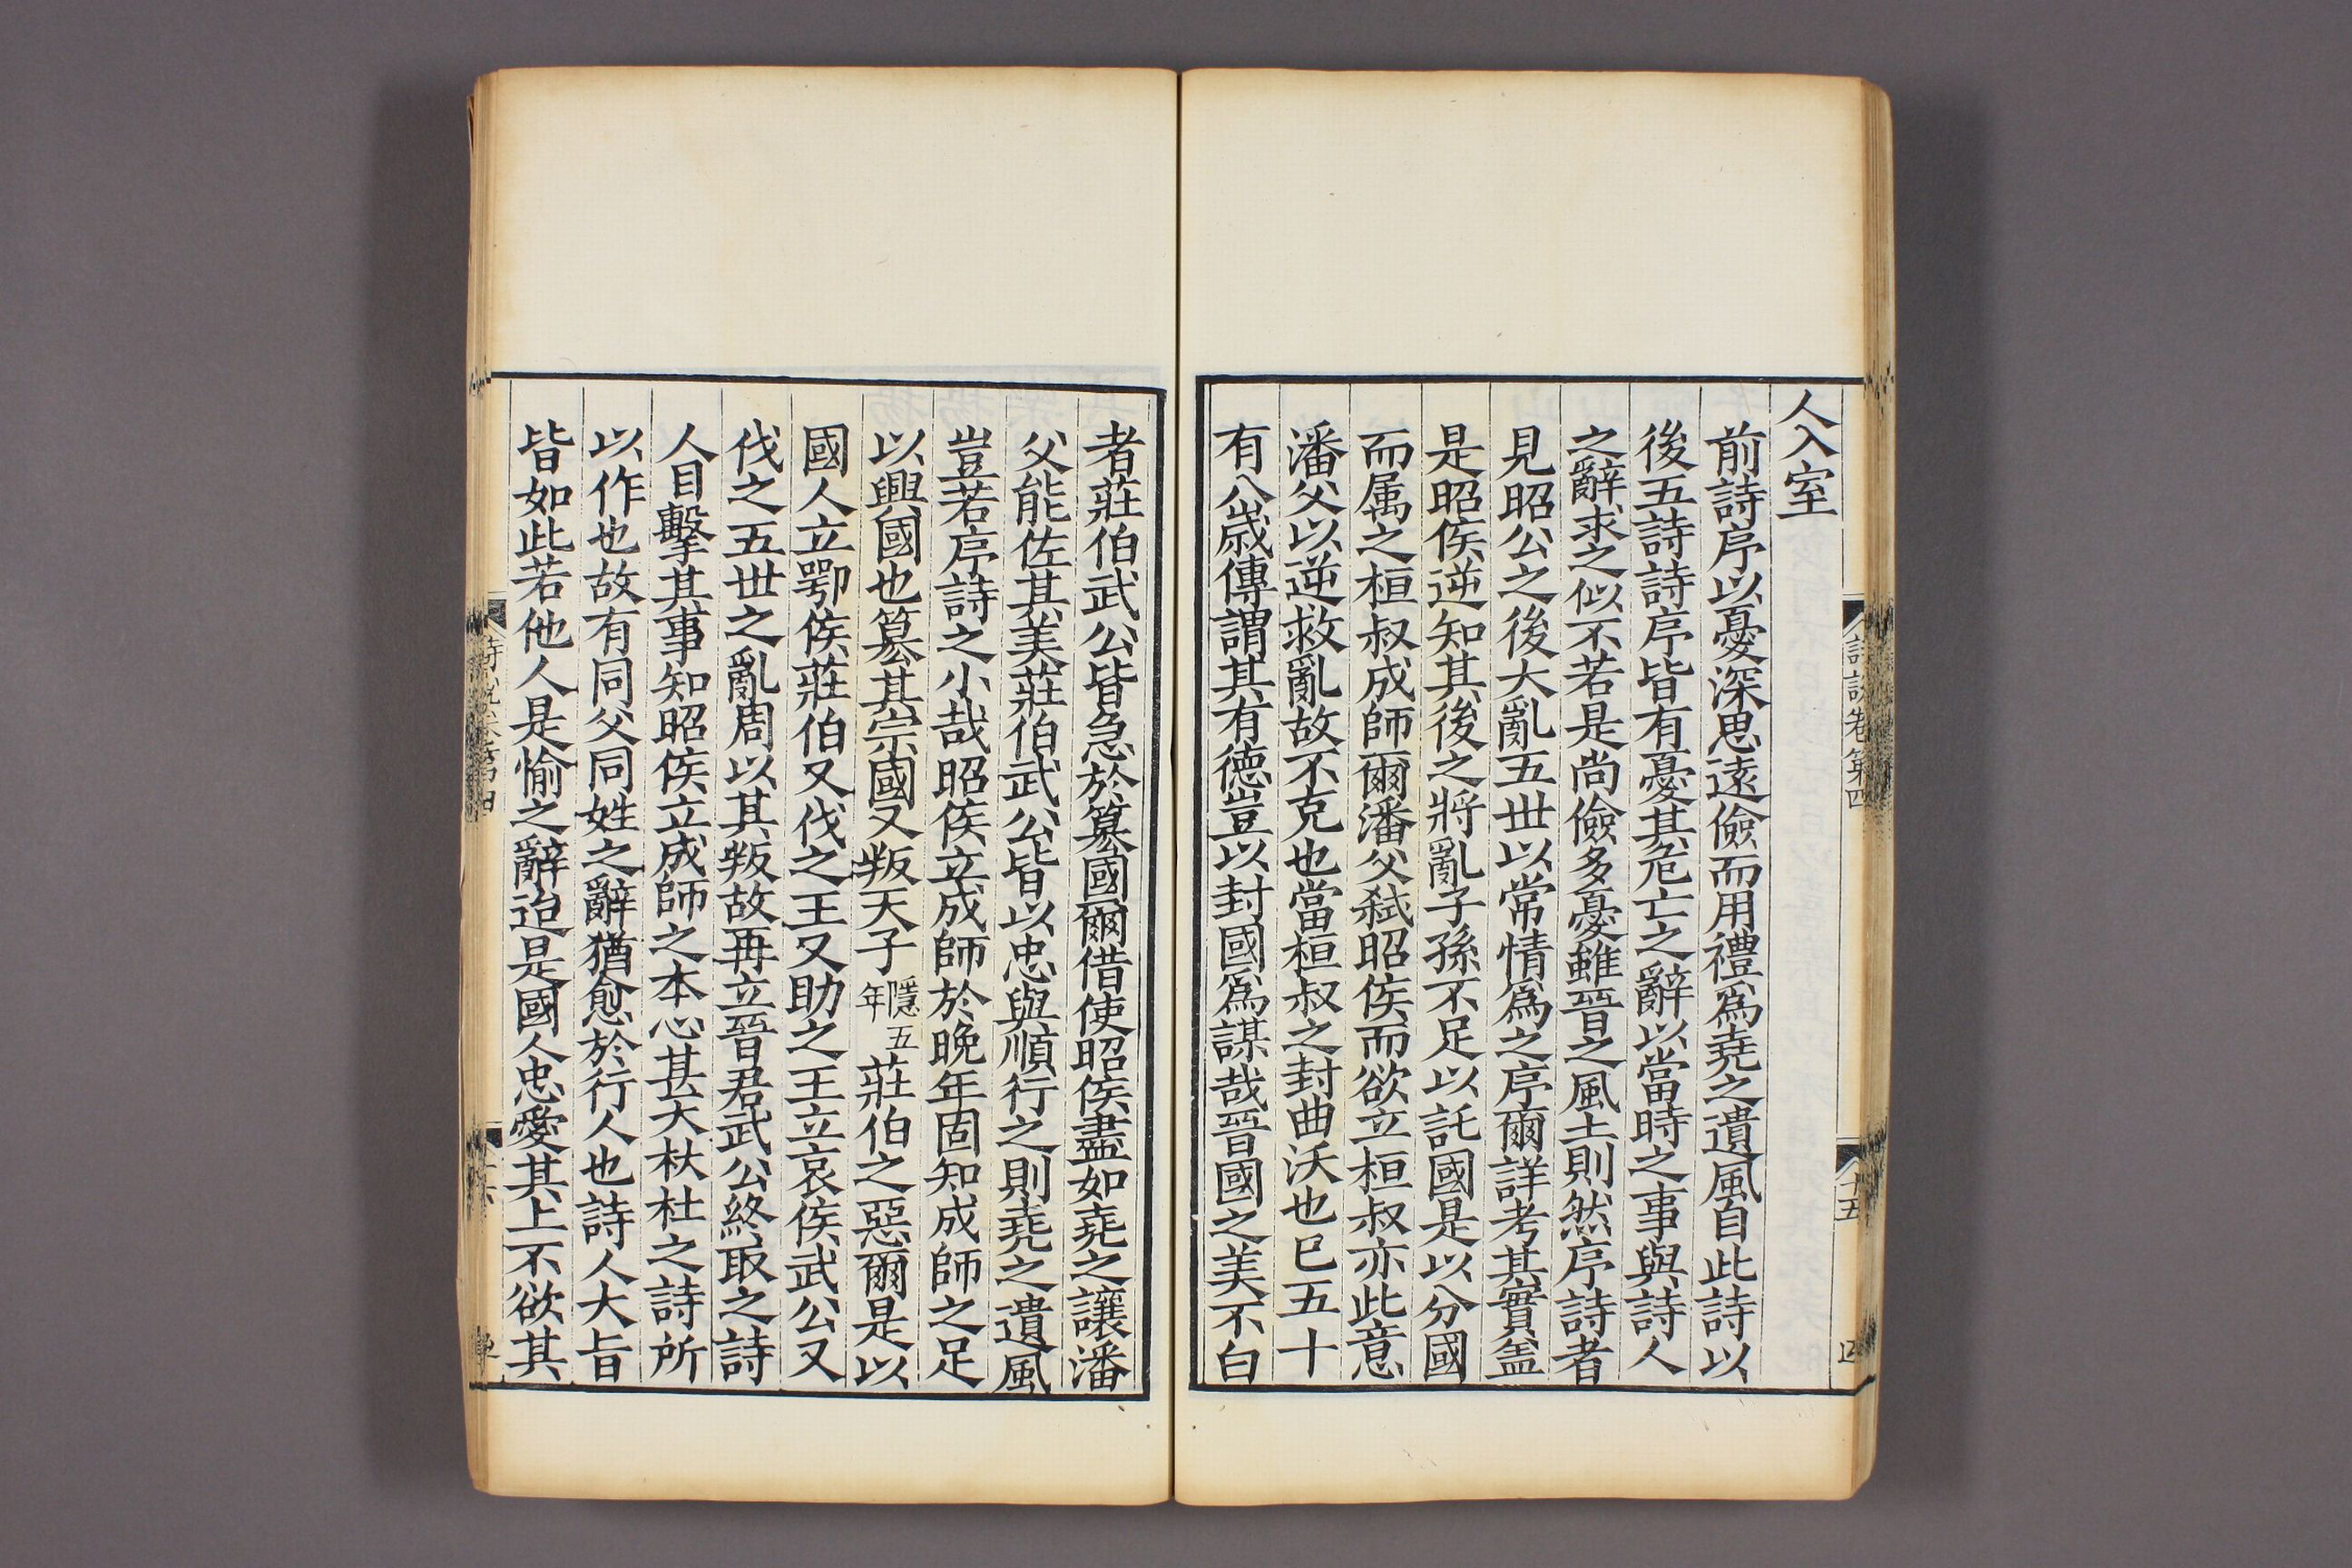 人入室
前詩序以憂深思遠儉而用禮爲堯之遺風自此詩以
後五詩詩序皆有憂其危亡之辭以當時之事與詩人
之辭求之似不若是尚儉多憂雖晉之風土則然序詩者
見昭公之後大亂五世以常情爲之序爾詳考其實盖
是昭侯逆知其後之將亂子孫不足以託國是以分國
而属之桓叔成師爾潘父弑昭侯而欲立桓叔亦此意
潘父以逆救亂故不克也當桓叔之封曲沃也已五十
有八歲傳謂其有德豈以封國爲謀哉晉國之美不白
詩說卷第四
十五
者莊伯武公皆急於簒國爾借使昭侯盡如堯之讓潘
父能佐其美莊伯武公皆以忠與順行之則堯之遺風
豈若序詩之小哉昭侯立成師於晚年固知成師之足
以興國也簒其宗國又叛天子隱五年莊伯之惡爾是以
國人立鄂侯莊伯又伐之王又助之王立哀侯武公又
伐之五世之亂周以其叛故再立晉君武公終取之詩
人目擊其事知昭侯立成師之本心甚大杕杜之詩所
以作也故有同父同姓之辭猶愈於行人也詩人大旨
皆如此若他人是愉之辭迨是國人忠愛其上不欲其